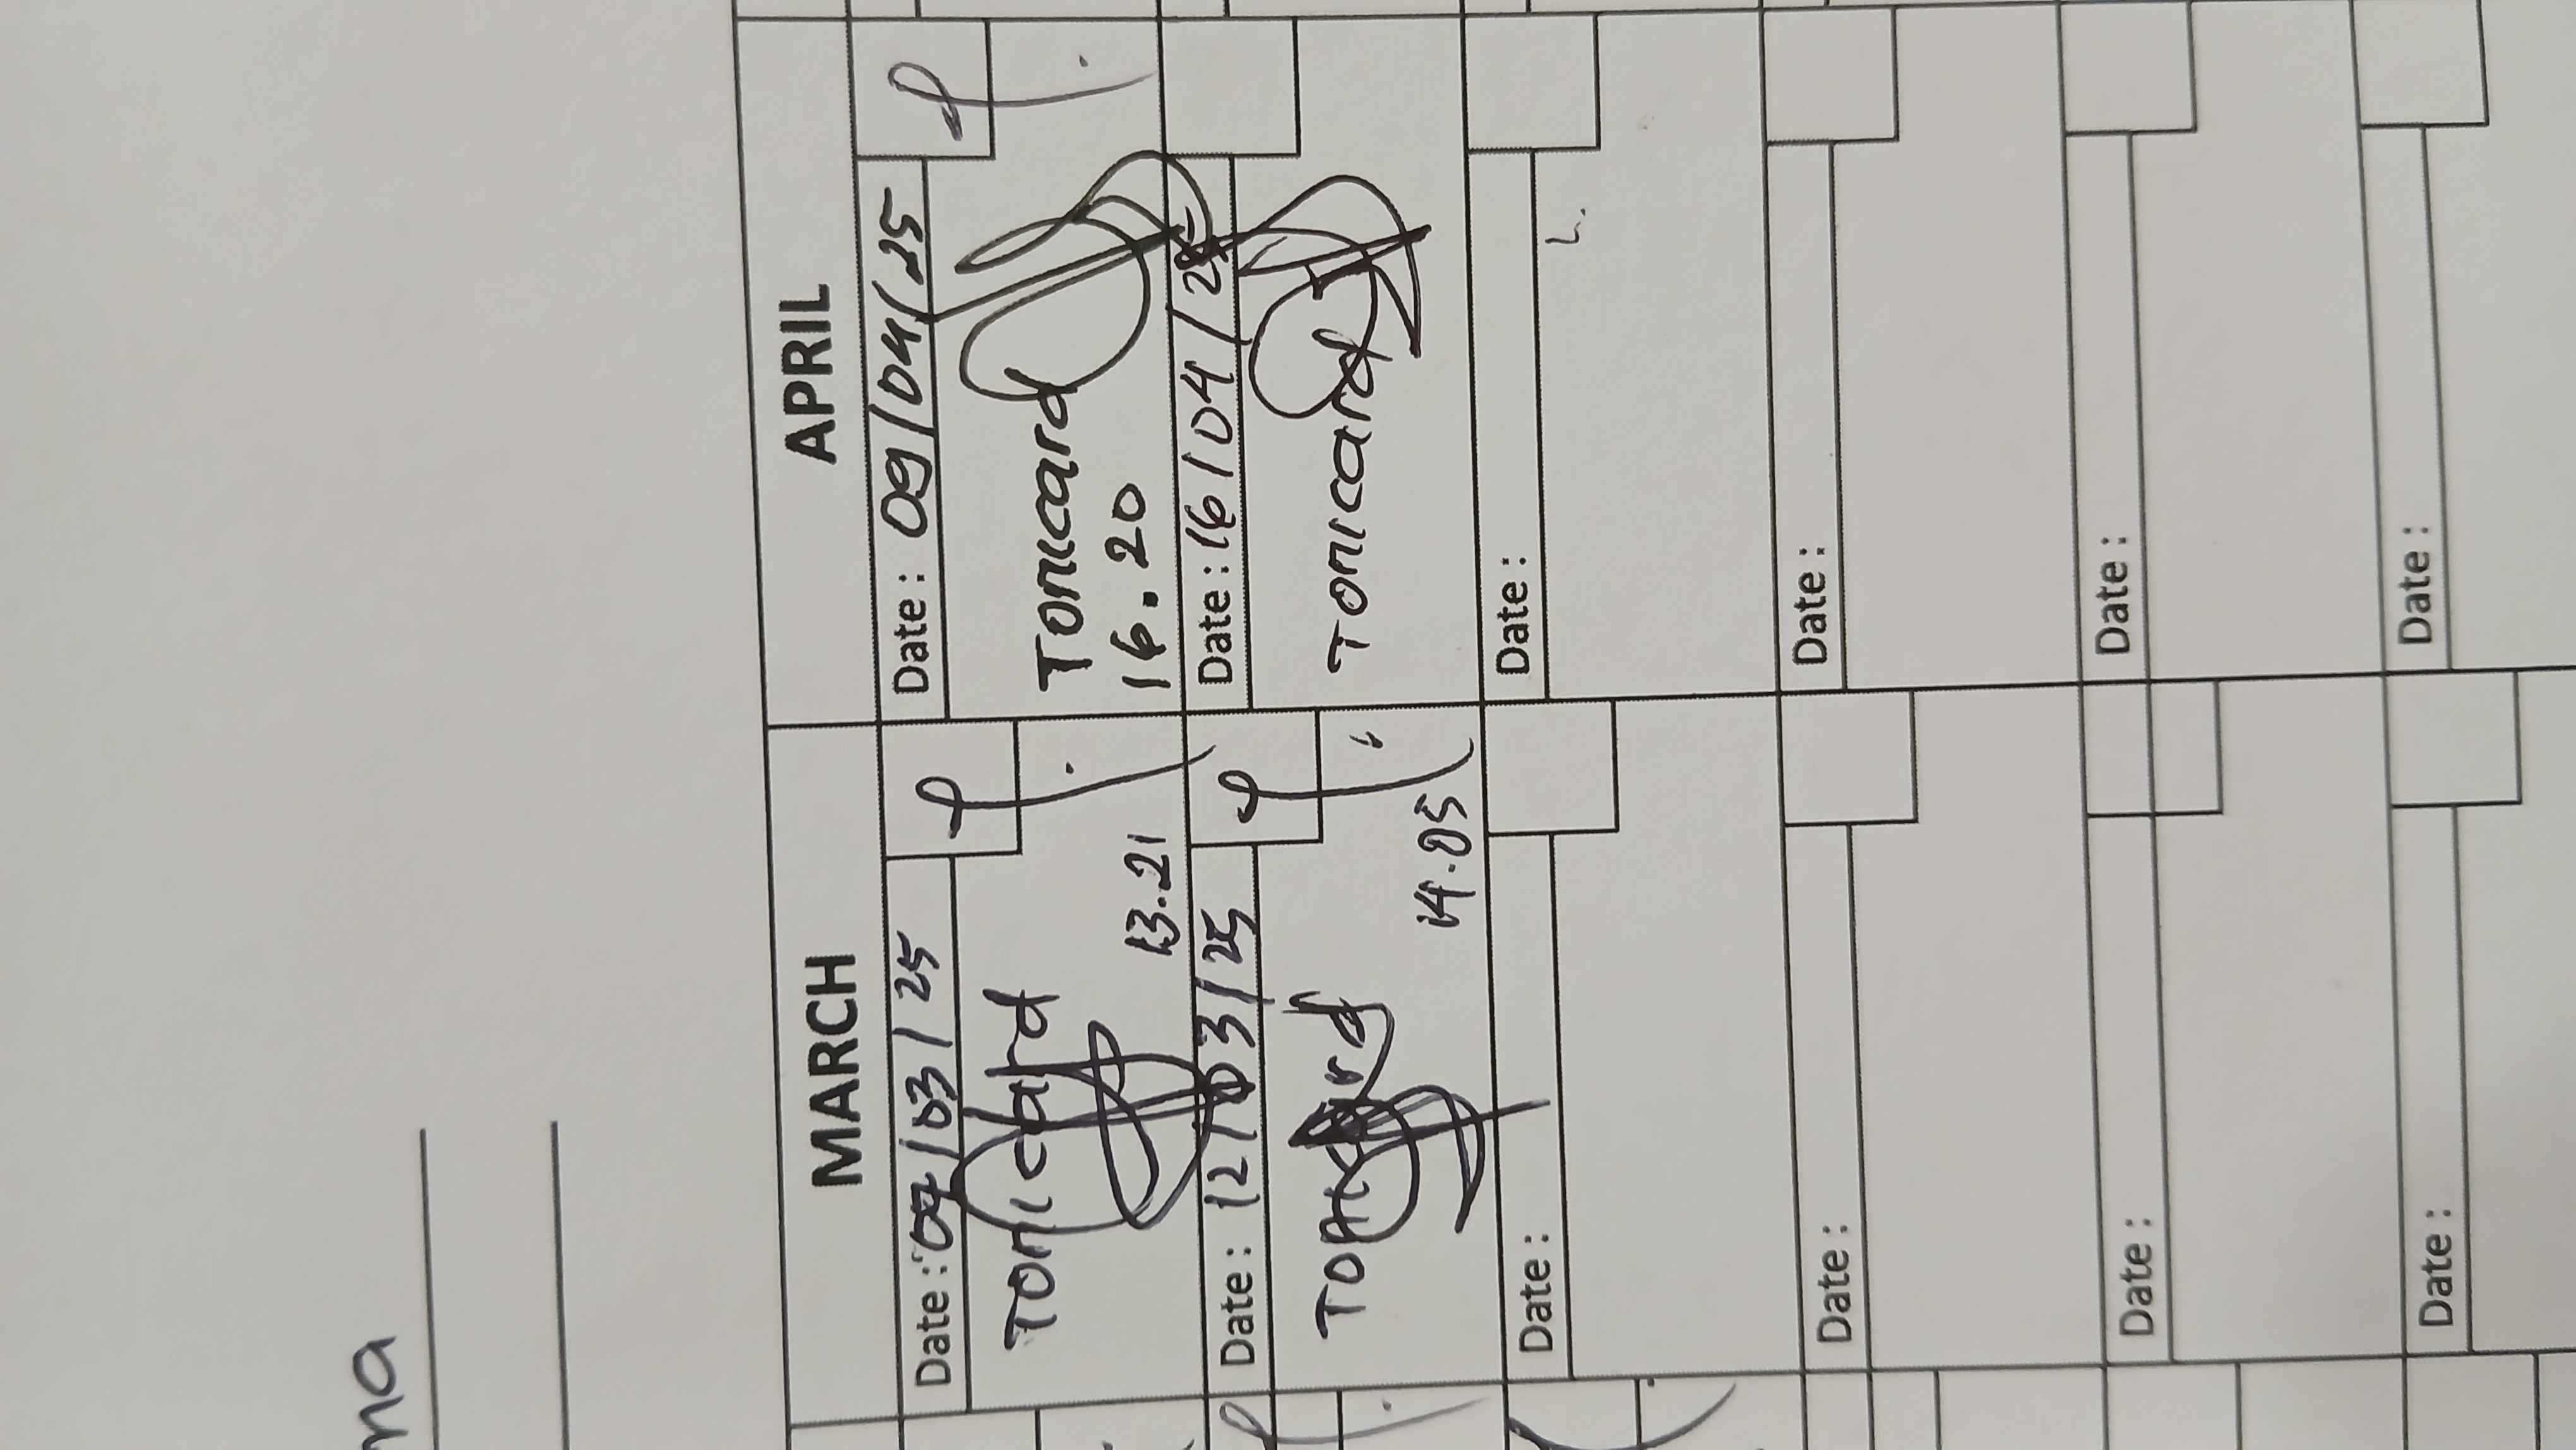 na
MARCH
APRIL
Date : 07/03/25
Tonicard
13.21
Date : 09/04/25
Tonicard
16.20
Date : 12/03/25
14.05
Date : 16/04/25
Tonicard
Date :
Date :
Date :
Date :
Date :
Date :
Date :
Date :